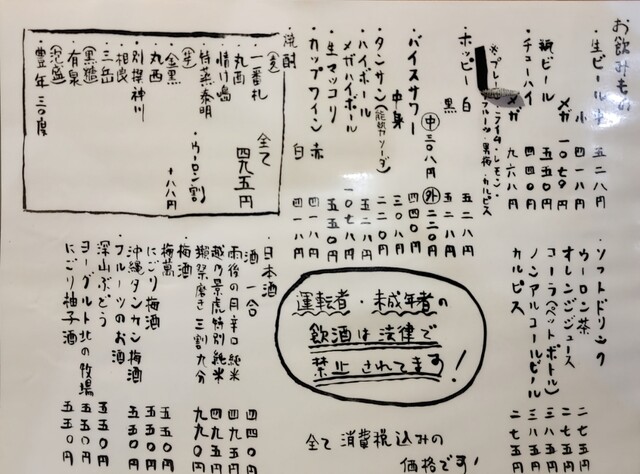 お飲みもの
・生ビール 中 五二八円
小 四一八円
メガ 一〇七〇円
・瓶ビール 五五〇円
・チューハイ 四四〇円
メガ 九六八円
※プレーン・ライム・レモン・
フルーツ・黒梅・カルピス
・ホッピー 白 五二八円
黒 五二八円
㊥三〇八円 ㊕二二〇円
・バイスサワー 四四〇円
中身 三〇八円
・タンサン(能勢ソーダ) 二二〇円
・ハイボール 四一八円
メガハイボール 一〇七八円
・生マッコリ 五五〇円
・カップワイン 赤 四一八円
白 四一八円
・焼酎
(麦)
一番札
丸西
情け嶋
特蒸泰明
(芋)
金黒
丸西
別撰神川
相良
三岳
(黒糖)
有泉
(泡盛)
豊年 三〇度
全て 四九五円
・ウーロン割
+八八円
・ソフトドリンク
ウーロン茶 二七五円
オレンジジュース 二七五円
コーラ(ペットボトル) 三八五円
ノンアルコールビール 三八五円
カルピス 二七五円
運転者・未成年者の
飲酒は法律で
禁止されてます!
全て消費税込みの
価格です!
・日本酒
酒 一合 四四〇円
雨後の月 辛口純米 四九五円
越乃景虎 特別純米 四九五円
獺祭 磨き三割九分 九九〇円
・梅酒
梅萬 五五〇円
にごり梅酒 五五〇円
沖縄タンカン梅酒 五五〇円
・フルーツのお酒
深山ぶどう 五五〇円
ヨーグルト北の牧場 五五〇円
にごり柚子酒 五五〇円